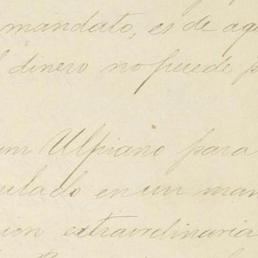 mandato, es de aq
dinero no puede p
um Ulpiano para
ulado en un man
ion extraordinaria